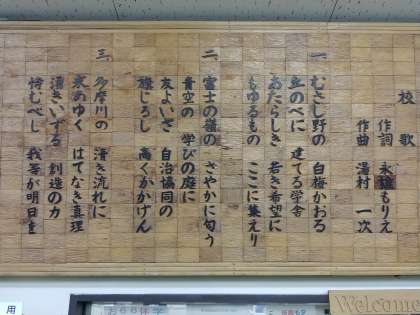 校歌
作詞 永雄もりえ
作曲 湯村 一次
一、むさし野の 白梅かおる
丘のべに 建てる学舎
あたらしき 若き希望に
もゆるもの ここに集えり
二、富士の嶺の さやかに匂う
青空の 学びの庭に
友よいざ 自治協同の
旗じるし 高くかかげん
三、多摩川の 清き流れに
求めゆく はてなき真理
湧きいずる 創造の力
恃むべし 我等が明日を
Welcome